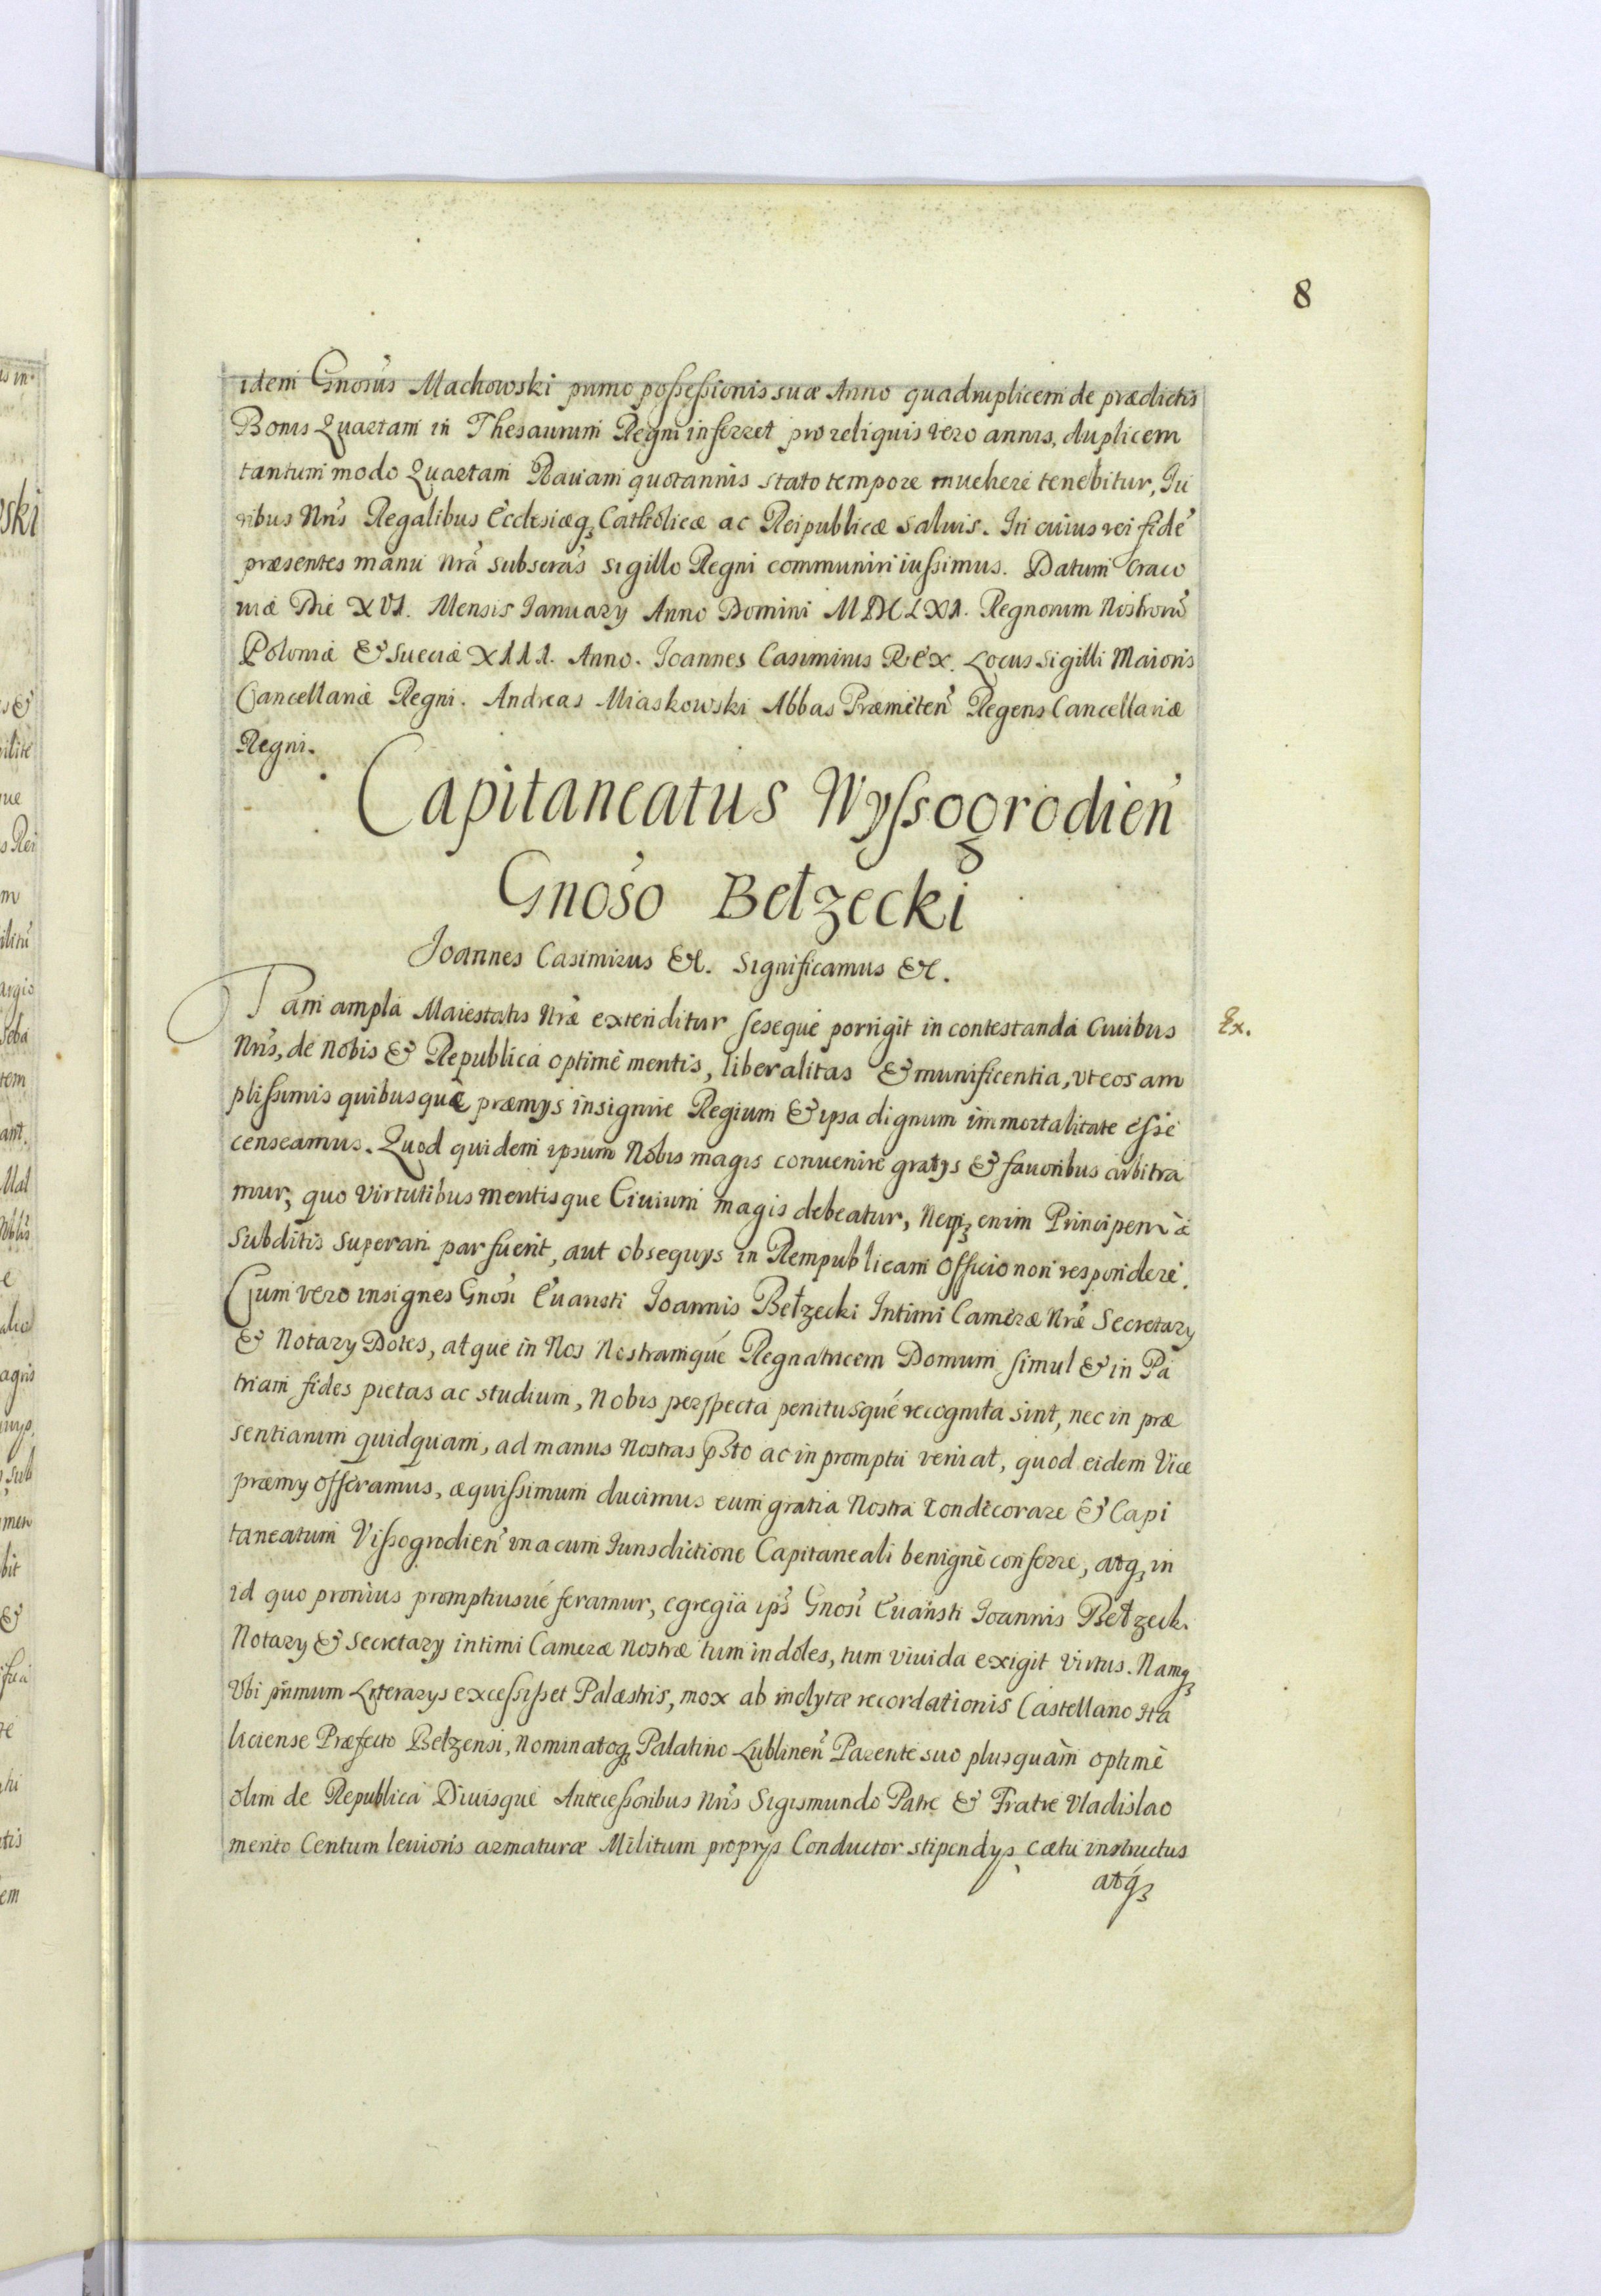 8
idem Gnosus Machowski primo possessionis suæ Anno quadruplicem de prædictis
Bonis Quartam in Thesaurum Regni inferret pro reliquis vero annis, duplicem
tantum modo Quartam Ravam quotannis stato tempore invehere tenebitur, Iu
ribus Nris Regalibus Ecclesiæq₃ Catholicæ ac Reipublicæ salvis. In cuius rei fide
præsentes manu nrã subscras sigillo Regni communiri iussimus. Datum Craco
viæ Die XVI. Mensis Ianuary Anno Domini MDCLXI. Regnorum Nostrorũ
Poloniæ & Sueciæ XIII. Anno. Joannes Casimirus Rex. Locus sigilli Maioris
Cancellariæ Regni. Andreas Miaskowski Abbas Præmeten Regens Cancellariæ
Regni.
Capitaneatus Wyssogrodien
Gnoso Bełzecki
Joannes Casimirus &c. Significamus &c.
Tam ampla Maiestatis Nræ extenditur seseque porrigit in contestanda Civibus
Ex.
Nris, de Nobis & Republica optimè meritis, liberalitas & munificentia, vt eos am
plissimis quibusque præmys insignire Regium & ipsa dignum immortalitate esse
censeamus. Quod quidem ipsum Nobis magis convenire gratys & favoribus arbitra
mur, quo virtutibus meritisque Civium magis debeatur, Neq₃ enim Principem à
Subditis superari par fuerit, aut obsequys in Rempublicam officio non respondere.
Cum vero insignes Gnosi Evaristi Joannis Bełzecki Intimi Cameræ Nræ Secretary
& Notary Dotes, atque in Nos Nostramque Regnatricem Domum simul & in Pa
triam fides pietas ac studium, Nobis perspecta penitusque recognita sint, nec in præ
sentiarum quidquam, ad manus Nostras psto ac in promptu veniat, quod eidem Vice
præmy offeramus, æquissimum ducimus eum gratia Nostra condecorare & Capi
taneatum Vissogrodien una cum Iurisdictione Capitaneali benignè conferre, atq₃ in
id quo pronius promptiusve feramur, egregia ips Gnosi Evaristi Joannis Bełzeck.
Notary & Secretary intimi Cameræ Nostræ tum indoles, tum vivida exigit Virtus. Namq₃
Vbi primum Literarys excessisset Palæstris, mox ab inclytæ recordationis Castellano Ha
liciense Præfecto Bełzensi, nominatoq₃ Palatino Lublinen Parente suo plusquàm optimè
olim de Republica Divisque Antecessoribus Nris Sigismundo Patre & Fratre Vladislao
merito Centum levioris armaturæ Militum proprys Conductor stipendys cætu instructus
atq₃